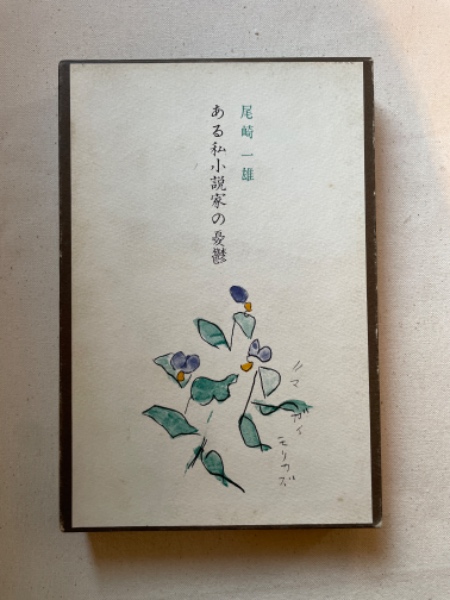 尾崎一雄
ある私小説家の憂鬱
クマガイ
モリカズ